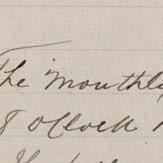 The monthly
8 o'clock